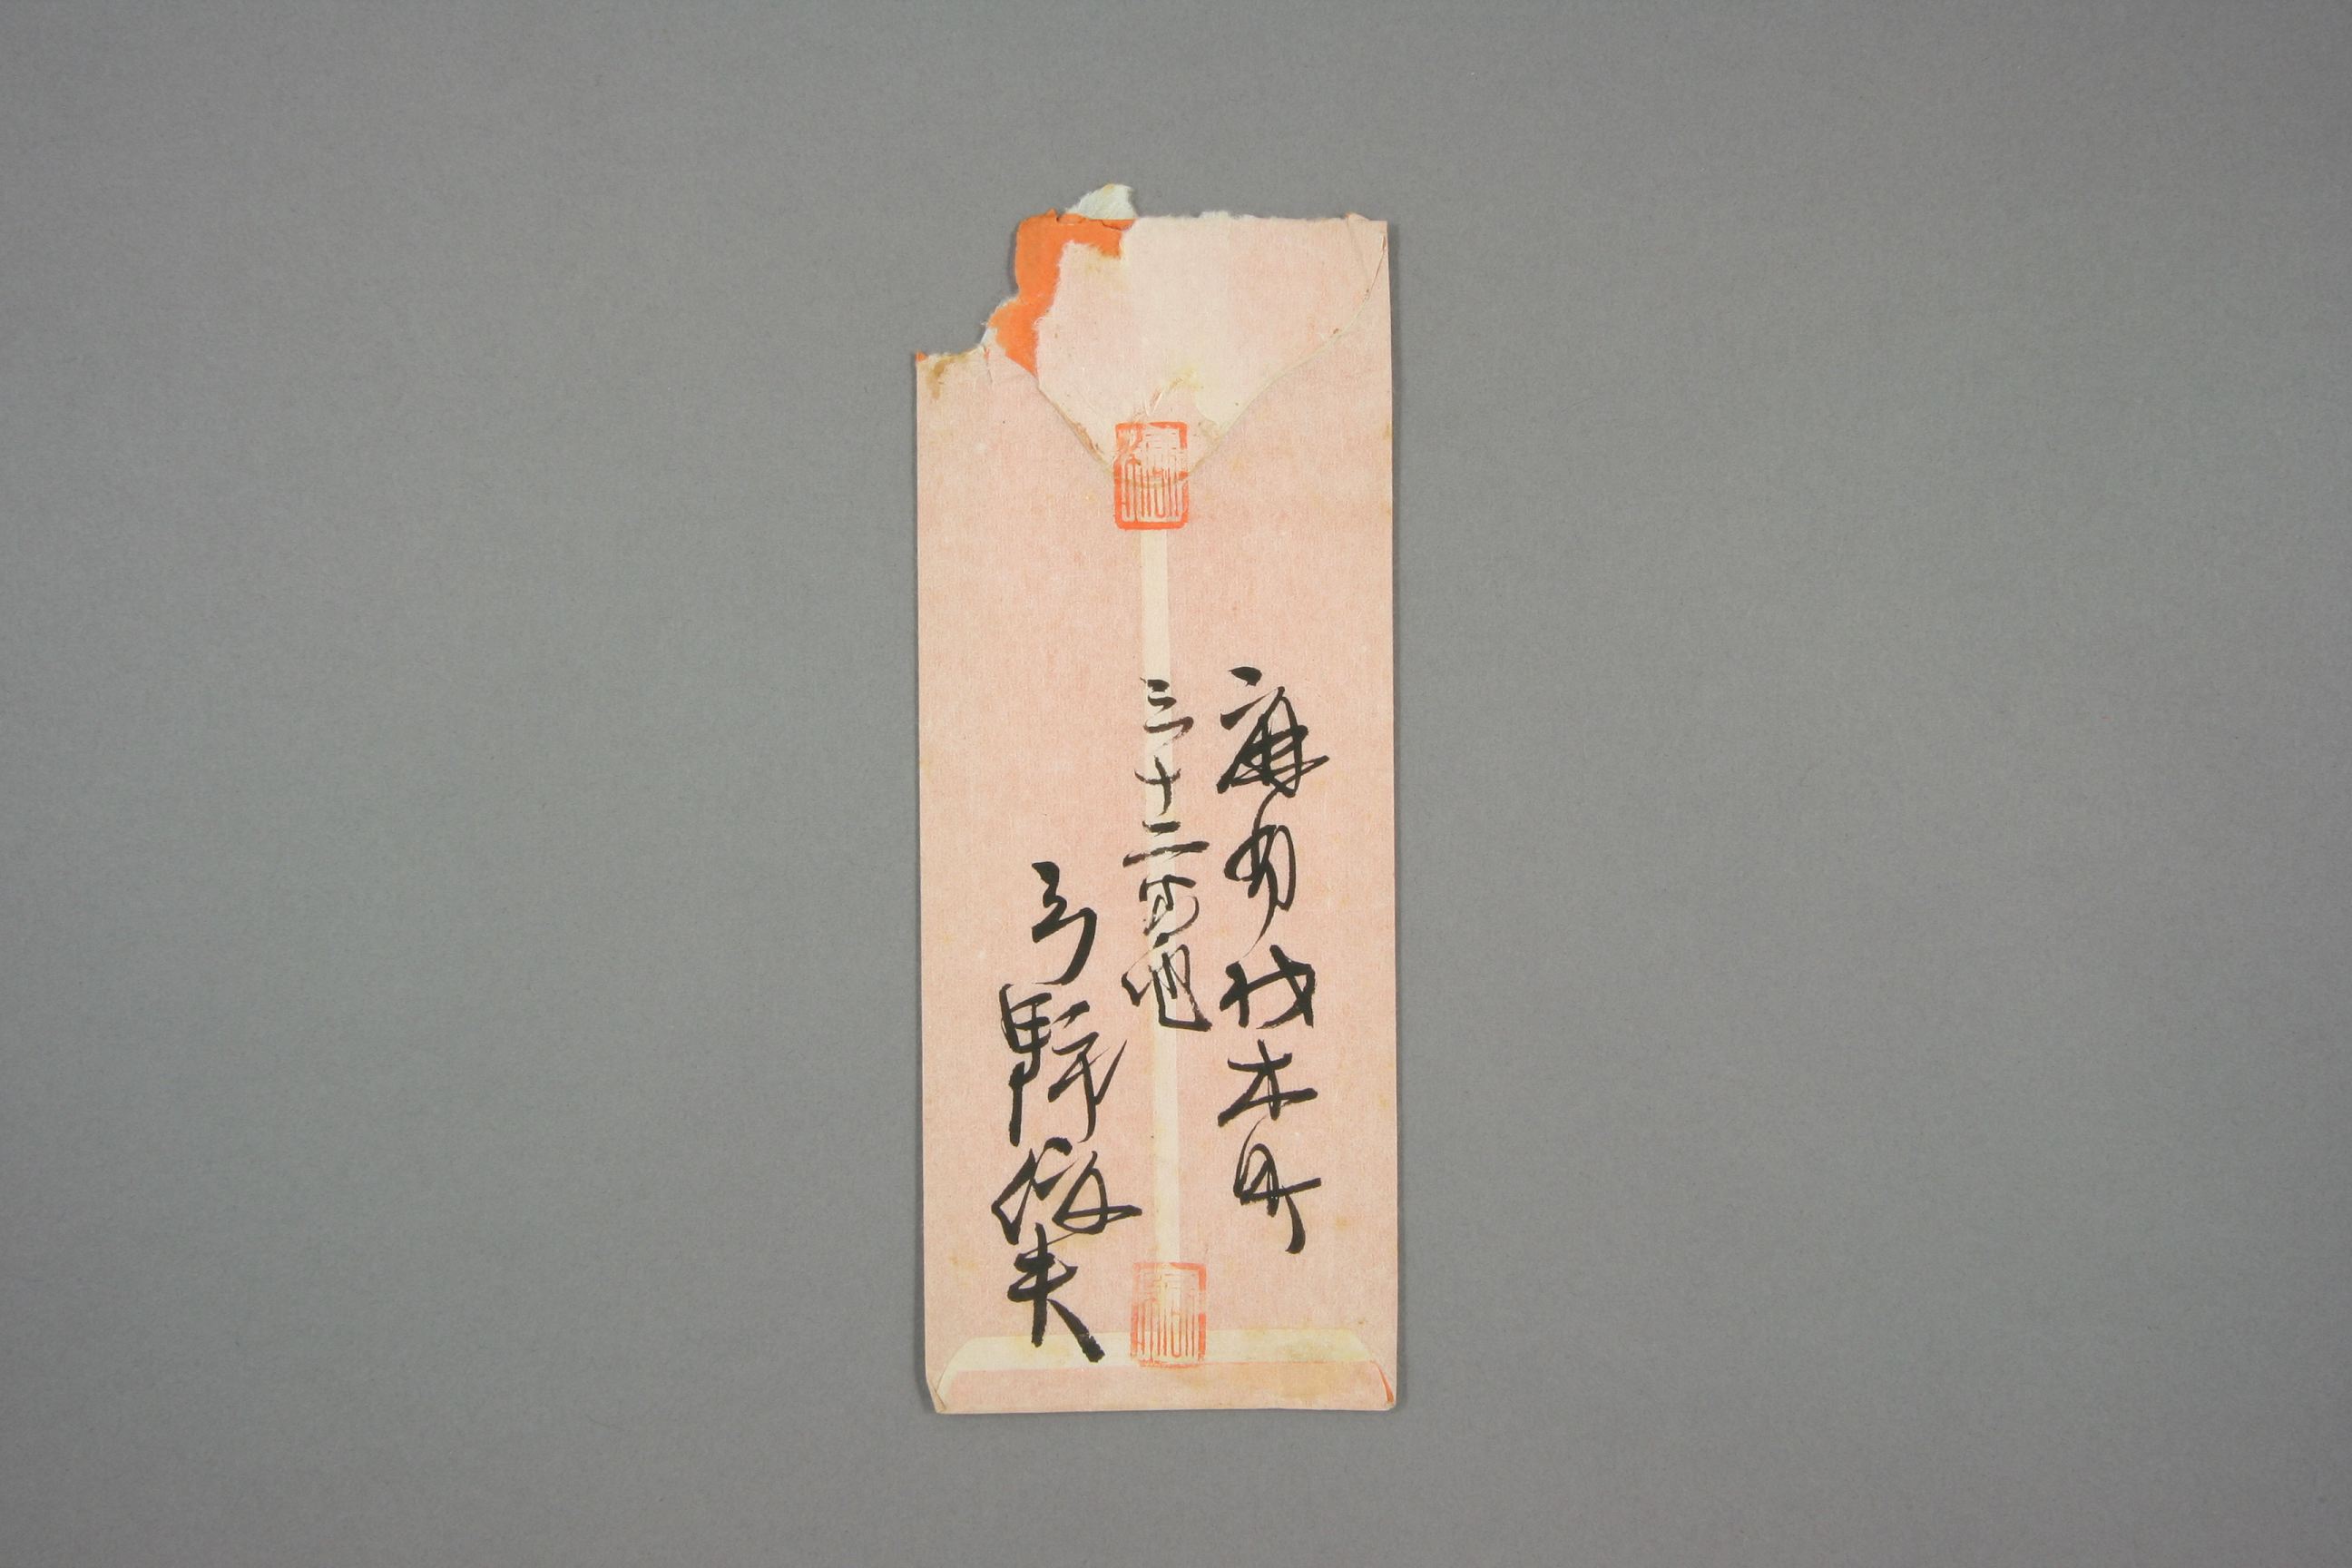 麻布材木町
三十二番地
弓野夫